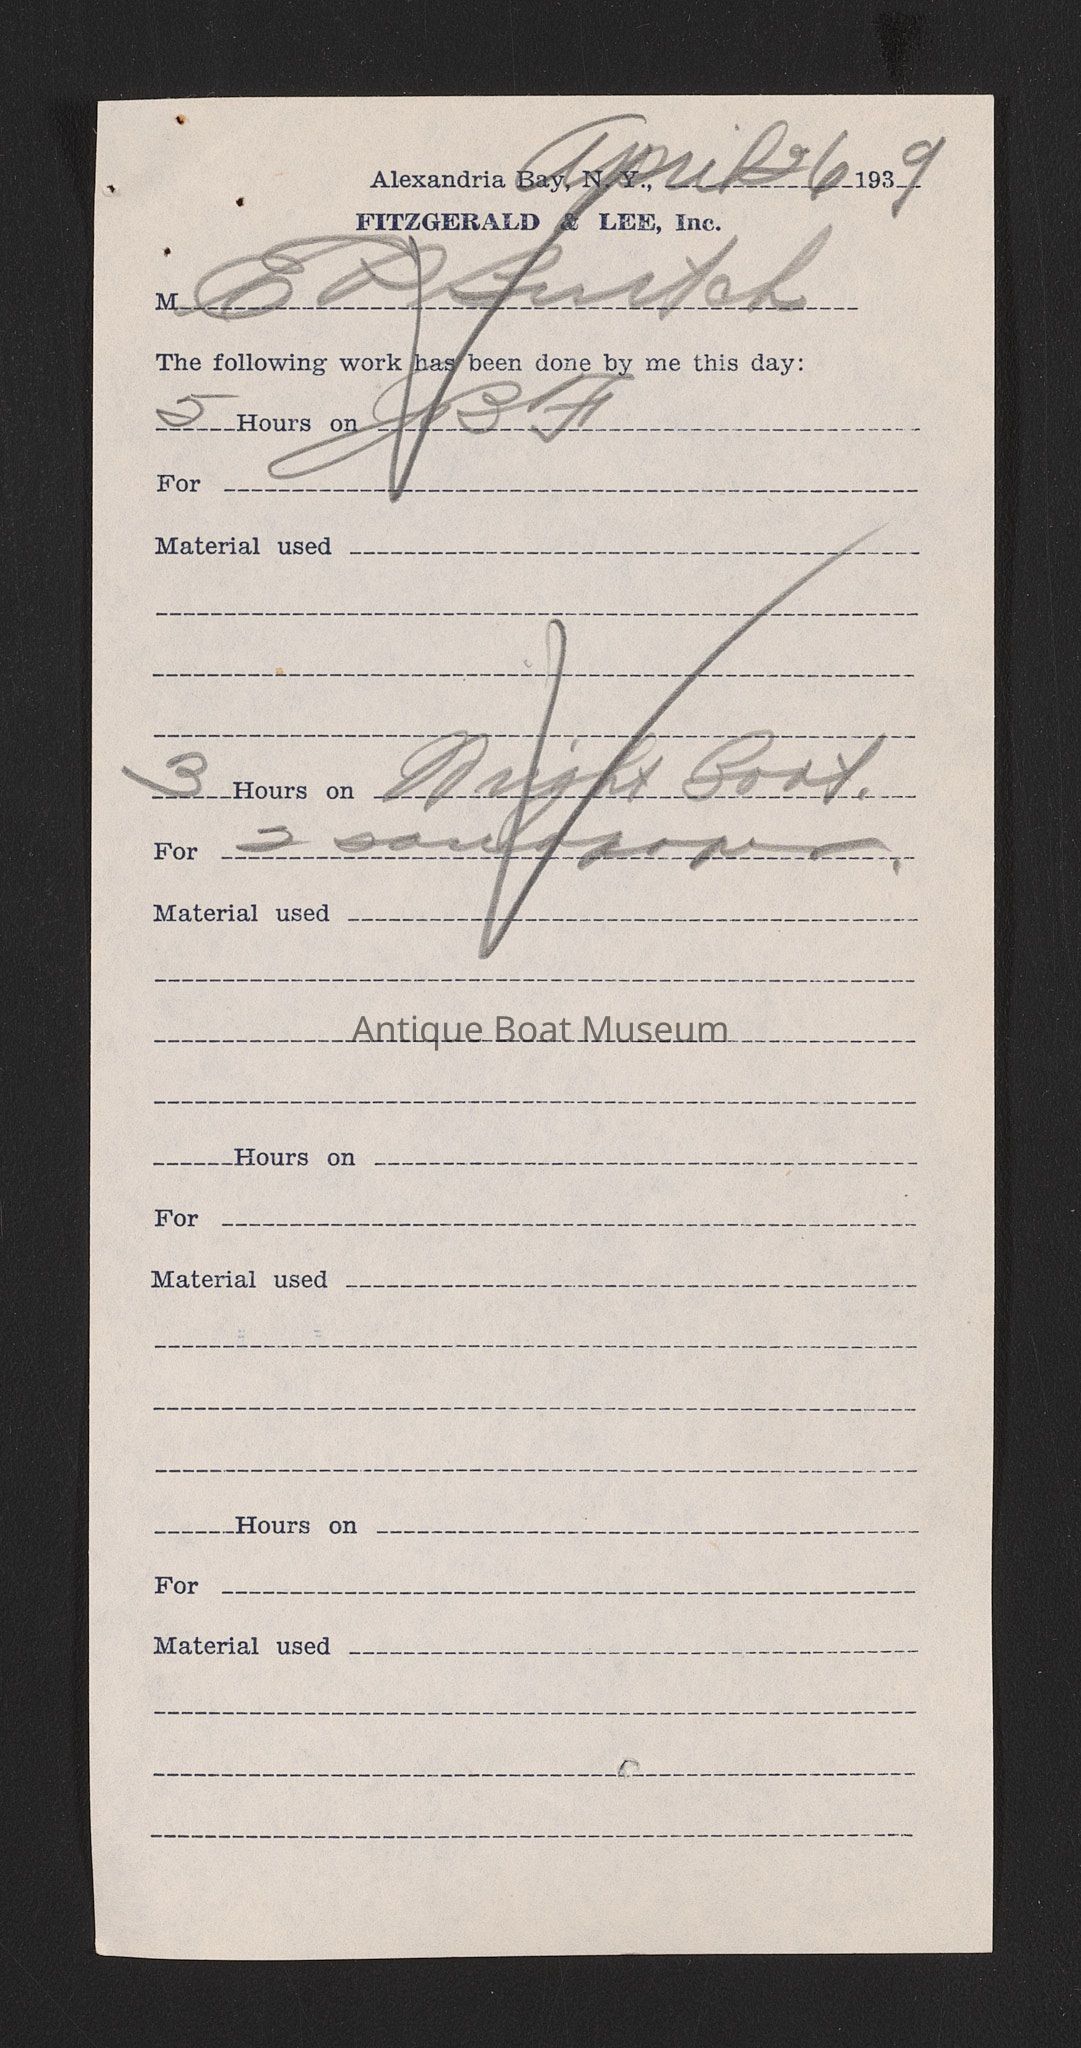 Alexandria Bay, N. Y., April 26 1939
FITZGERALD & LEE, Inc.
M E P
The following work has been done by me this day:
5 Hours on JBF
For
Material used
3 Hours on Wright Boat.
For 2 sandpaper.
Material used
Antique Boat Museum
Hours on
For
Material used
Hours on
For
Material used